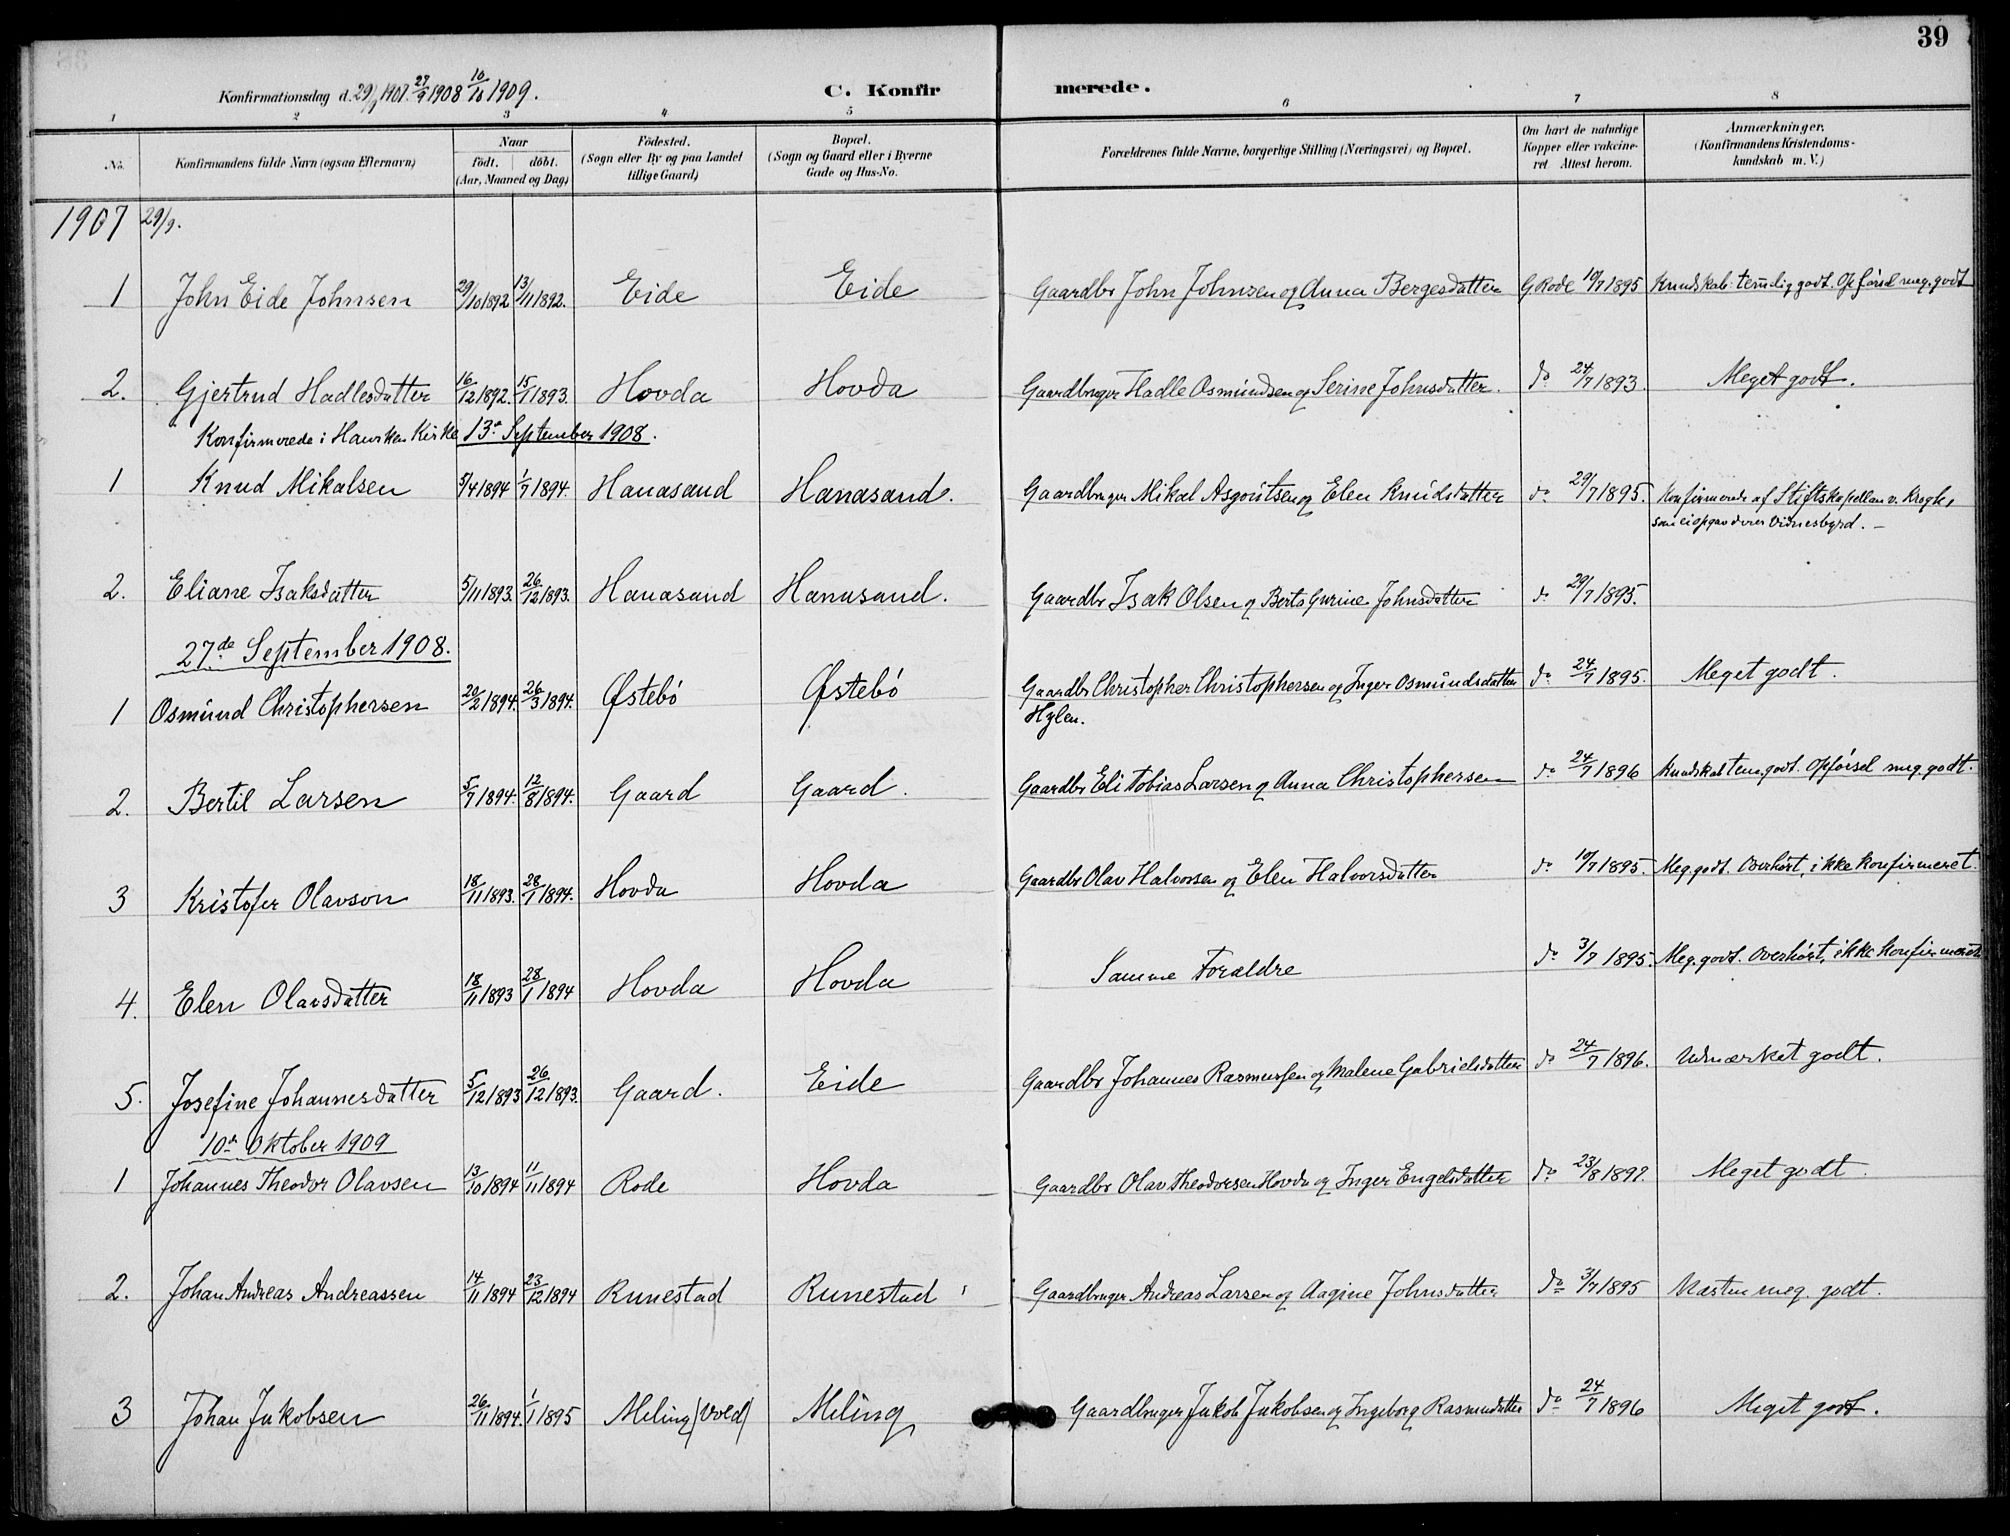 39
Konfirmationsdag d. 29/9 1907. 27/9 1908 10/10 1909.
C. Konfir merede.
1 2 3 4 5 6 7 8
No.
Konfirmandens fulde Navn (ogsaa Efternavn)
Naar
født. | døbt.
(Aar, Maaned og Dag)
Fødested.
(Sogn eller By og paa Landet
tillige Gaard)
Bopæl.
(Sogn og Gaard eller i Byerne
Gade og Hus-No.
Forældrenes fulde Navne, borgerlige Stilling (Næringsvei) og Bopæl.
Om havt de naturlige
Kopper eller vakcine-
ret. Attest herom.
Anmærkninger.
(Konfirmandens Kristendoms-
kundskab m. V.)
1907 29/9.
1 John Eide Johnsen 29/10 1892 13/11 1892. Eide Eide Gaardbr John Johnsen og Anna Bergesdatter G Rode 10/7 1895 Kundskab temlig godt. Opførsel meg. godt
2. Gjertrud Hadlesdatter 16/12 1892. 15/1 1893. Hovda Hovda Gaardbruger Hadle Osmundsen og Serine Johnsdatter. do 24/7 1893. Meget godt.
Konfirmerede i Hausken Kirke 13de September 1908.
1 Knud Mikalsen 5/4 1894 1/7 1894. Hanasand Hanasand. Gaardbruger Mikal Asgoutsen og Elen Knudsdatter do 29/7 1895. Konfirmerede af Stiftskapellan v. Krogh,
som ei opgav deres Vidnesbyrd. –
2. Eliane Isaksdatter 5/11 1893. 26/12 1893. Hanasand Hanasand. Gaardbr Isak Olsen og Berta Gurine Johnsdatter do 29/7 1895.
27de September 1908.
1 Osmund Christophersen 20/2 1894. 26/3 1894. Østebø Østebø Gaardbr Christopher Christophersen og Inger Osmundsdatter do 24/7 1895. Meget godt.
Hylen.
2. Bertil Larsen 5/7 1894. 12/8 1894. Gaard Gaard. Gaardbr Eli Tobias Larsen og Anna Christophersen do 24/7 1896 Kundskab tem. godt. Opførsel meg. godt.
3 Kristofer Olavson 18/11 1893. 28/1 1894. Hovda Hovda Gaardbr Olav Halvorsen og Elen Halvorsdatter do 10/7 1895. Meg. godt. Overhørt, ikke konfirmeret.
4. Elen Olavsdatter 18/11 1893 28/1 1894 Hovda Hovda Samme Forældre do 3/7 1895. Meg. godt. Overhørt, ikke konfirmeret
5. Josefine Johannesdatter 5/12 1893 26/12 1893. Gaard. Eide Gaardbr Johannes Rasmussen og Malene Gabrielsdatter do 24/7 1896. Udmærket godt.
10de Oktober 1909
1 Johannes Theodor Olavsen 13/10 1894 11/11 1894 Rode Hovda Gaardbr Olav Theodorsen Hovda og Inger Engelsdatter do 23/8 1897. Meget godt.
2. Johan Andreas Andreassen 14/11 1894 23/12 1894 Runestad Runestad Gaardbruger Andreas Larsen og Aagine Johnsdatter do 3/7 1895 Næsten meg. godt.
3 Johan Jakobsen 26/11 1894. 1/1 1895 Meling (Vold) Meling Gaardbruger Jakob Jakobsen og Ingeborg Rasmusdatter do 24/7 1896 Meget godt.